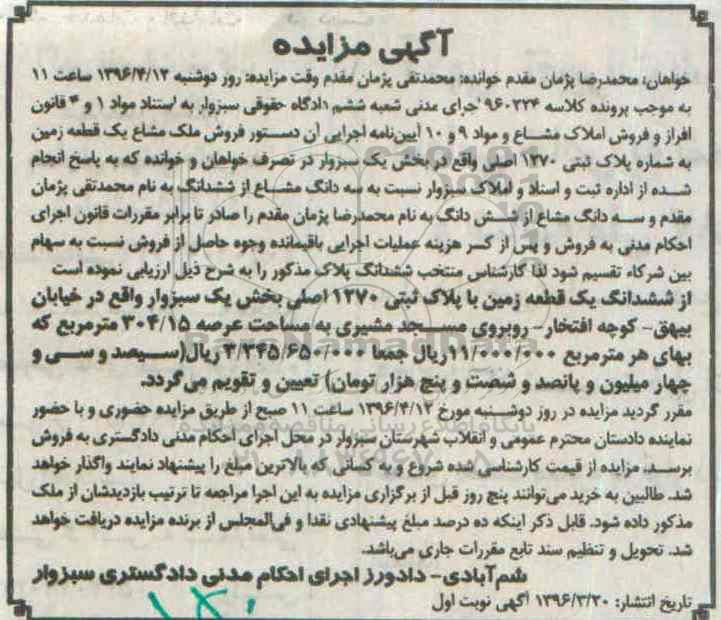 آگهی مزایده
خواهان: محمدرضا پژمان مقدم خوانده: محمدتقی پژمان مقدم وقت مزایده: روز دوشنبه ۱۳۹۶/۴/۱۲ ساعت ۱۱
به موجب پرونده کلاسه ۹۶۰۲۲۴ اجرای مدنی شعبه ششم دادگاه حقوقی سبزوار به استناد مواد ۱ و ۴ قانون
افراز و فروش املاک مشاع و مواد ۹ و ۱۰ آیین‌نامه اجرایی آن دستور فروش ملک مشاع یک قطعه زمین
به شماره پلاک ثبتی ۱۲۷۰ اصلی واقع در بخش یک سبزوار در تصرف خواهان و خوانده که به پاسخ انجام
شده از اداره ثبت و اسناد و املاک سبزوار نسبت به سه دانگ مشاع از ششدانگ به نام محمدتقی پژمان
مقدم و سه دانگ مشاع از شش دانگ به نام محمدرضا پژمان مقدم را صادر تا برابر مقررات قانون اجرای
احکام مدنی به فروش و پس از کسر هزینه عملیات اجرایی باقیمانده وجوه حاصل از فروش نسبت به سهام
بین شرکاء تقسیم شود لذا کارشناس منتخب ششدانگ پلاک مذکور را به شرح ذیل ارزیابی نموده است
از ششدانگ یک قطعه زمین با پلاک ثبتی ۱۲۷۰ اصلی بخش یک سبزوار واقع در خیابان
بیهق- کوچه افتخار- روبروی مسجد مشیری به مساحت عرصه ۳۰۴/۱۵ مترمربع که
بهای هر مترمربع ۱۱/۰۰۰/۰۰۰ریال جمعا ۳/۳۴۵/۶۵۰/۰۰۰ ریال(سیصد و سی و
چهار میلیون و پانصد و شصت و پنج هزار تومان) تعیین و تقویم می‌گردد.
مقرر گردید مزایده در روز دوشنبه مورخ ۱۳۹۶/۴/۱۲ ساعت ۱۱ صبح از طریق مزایده حضوری و با حضور
نماینده دادستان محترم عمومی و انقلاب شهرستان سبزوار در محل اجرای احکام مدنی دادگستری به فروش
برسد. مزایده از قیمت کارشناسی شده شروع و به کسانی که بالاترین مبلغ را پیشنهاد نمایند واگذار خواهد
شد. طالبین به خرید می‌توانند پنج روز قبل از برگزاری مزایده به این اجرا مراجعه تا ترتیب بازدیدشان از ملک
مذکور داده شود. قابل ذکر اینکه ده درصد مبلغ پیشنهادی نقدا و فی‌المجلس از برنده مزایده دریافت خواهد
شد. تحویل و تنظیم سند تابع مقررات جاری می‌باشد.
شم‌آبادی- دادورز اجرای احکام مدنی دادگستری سبزوار
تاریخ انتشار: ۱۳۹۶/۳/۲۰ آگهی نوبت اول